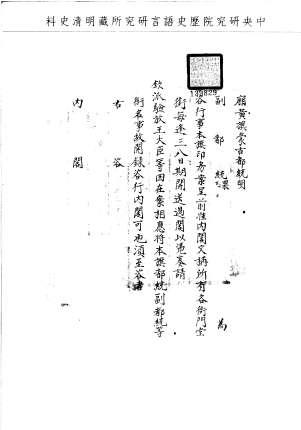 中央研究院歷史語言研究所藏明清史料
135829
廂黃旗蒙古都統明
副都統
為
咨行事本旗印務案呈前准內閣文稱所有各衙門堂
銜每逢三八日期開送過閣以憑奏請
欽派驗放王大臣等因在案相應將本旗都統副都統等
銜名事故開錄咨行內閣可也須至咨者
右咨
內閣